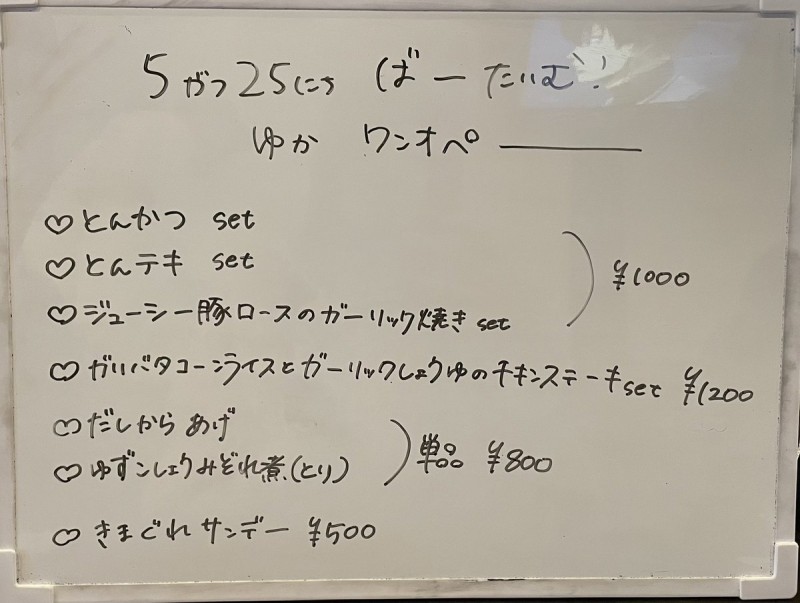 5がつ25にち ばーたいむ!!
ゆか ワンオペ ―――
♡とんかつ set
♡とんテキ set
♡ジューシー豚ロースのガーリック焼き set
¥1000
♡ガリバタコーンライスとガーリックしょうゆのチキンステーキset ¥1200
♡だしからあげ
♡ゆずこしょうみぞれ煮(とり)
単品 ¥800
♡きまぐれサンデー ¥500